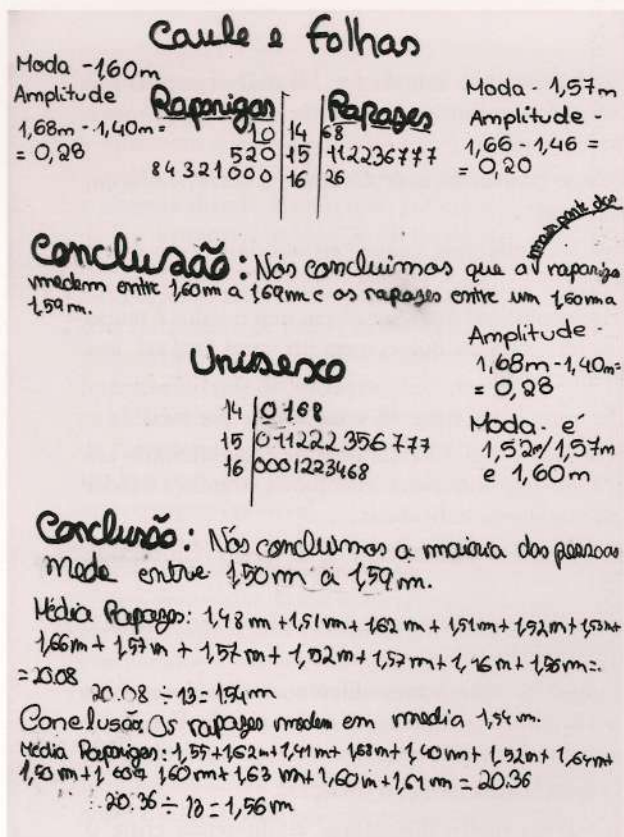 Caule e Folhas
Moda - 1,60m
Amplitude
1,68m - 1,40m =
= 0,28
Raparigas | | Rapazes
10 | 14 | 68
520 | 15 | 112236777
84321000 | 16 | 26
Moda - 1,57m
Amplitude -
1,66 - 1,46 =
= 0,20
maior parte das
Conclusão: Nós concluimos que a raparigas
medem entre 1,60m a 1,69m e os rapazes entre um 1,50m a
1,59m.
Unisexo
14 | 0168
15 | 011222356777
16 | 0001223468
Amplitude -
1,68m - 1,40m =
= 0,28
Moda - é
1,52m/1,57m
e 1,60m
Conclusão: Nós concluimos a maioria das pessoas
mede entre 1,50m a 1,59m.
Média Rapazes: 1,48m + 1,51m + 1,62m + 1,51m + 1,52m + 1,53m +
1,66m + 1,57m + 1,57m + 1,52m + 1,57m + 1,46m + 1,56m =
= 20.08
20.08 ÷ 13 = 1,54m
Conclusão: Os rapazes medem em media 1,54m.
Média Raparigas: 1,55 + 1,62m + 1,41m + 1,68m + 1,40m + 1,52m + 1,64m +
1,50m + 1,60m + 1,60m + 1,63m + 1,60m + 1,61m = 20.36
20.36 ÷ 13 = 1,56m